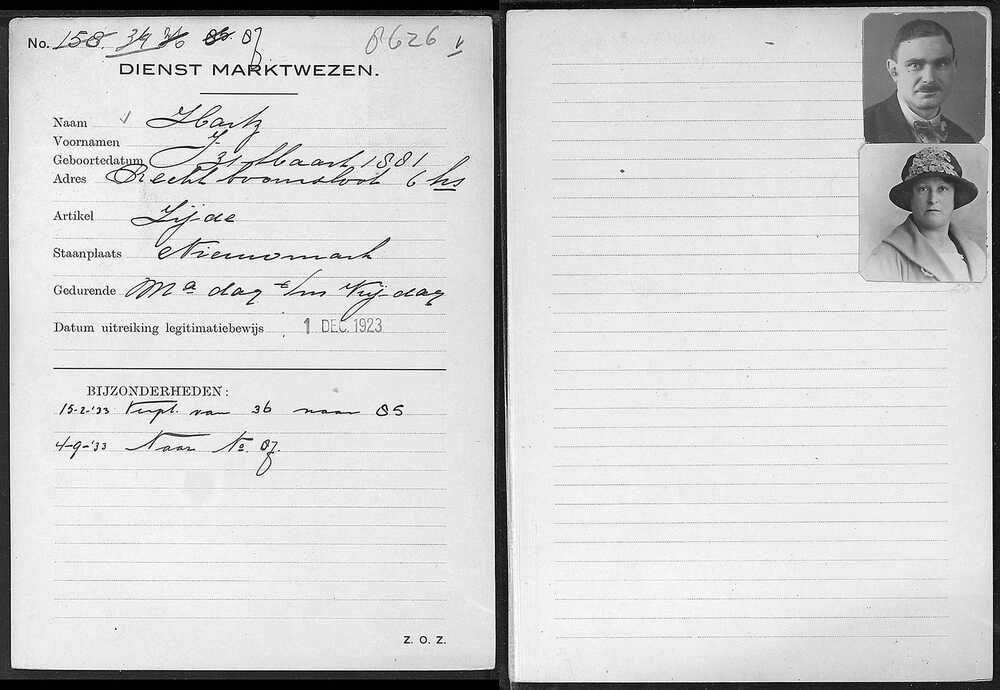 No. 158. 34 36 85. 87 8626 v
DIENST MARKTWEZEN.
Naam Hartz
Voornamen J
Geboortedatum 31 Maart 1881
Adres Rechtboomsloot 6 hs
Artikel Zijde
Staanplaats Nieuwmarkt
Gedurende Ma dag t/m Vrij-dag
Datum uitreiking legitimatiebewijs 1 DEC. 1923
BIJZONDERHEDEN:
15-2-'33 Verpl. van 36 naar 85
4-9-'33 Naar No. 87.
Z. O. Z.